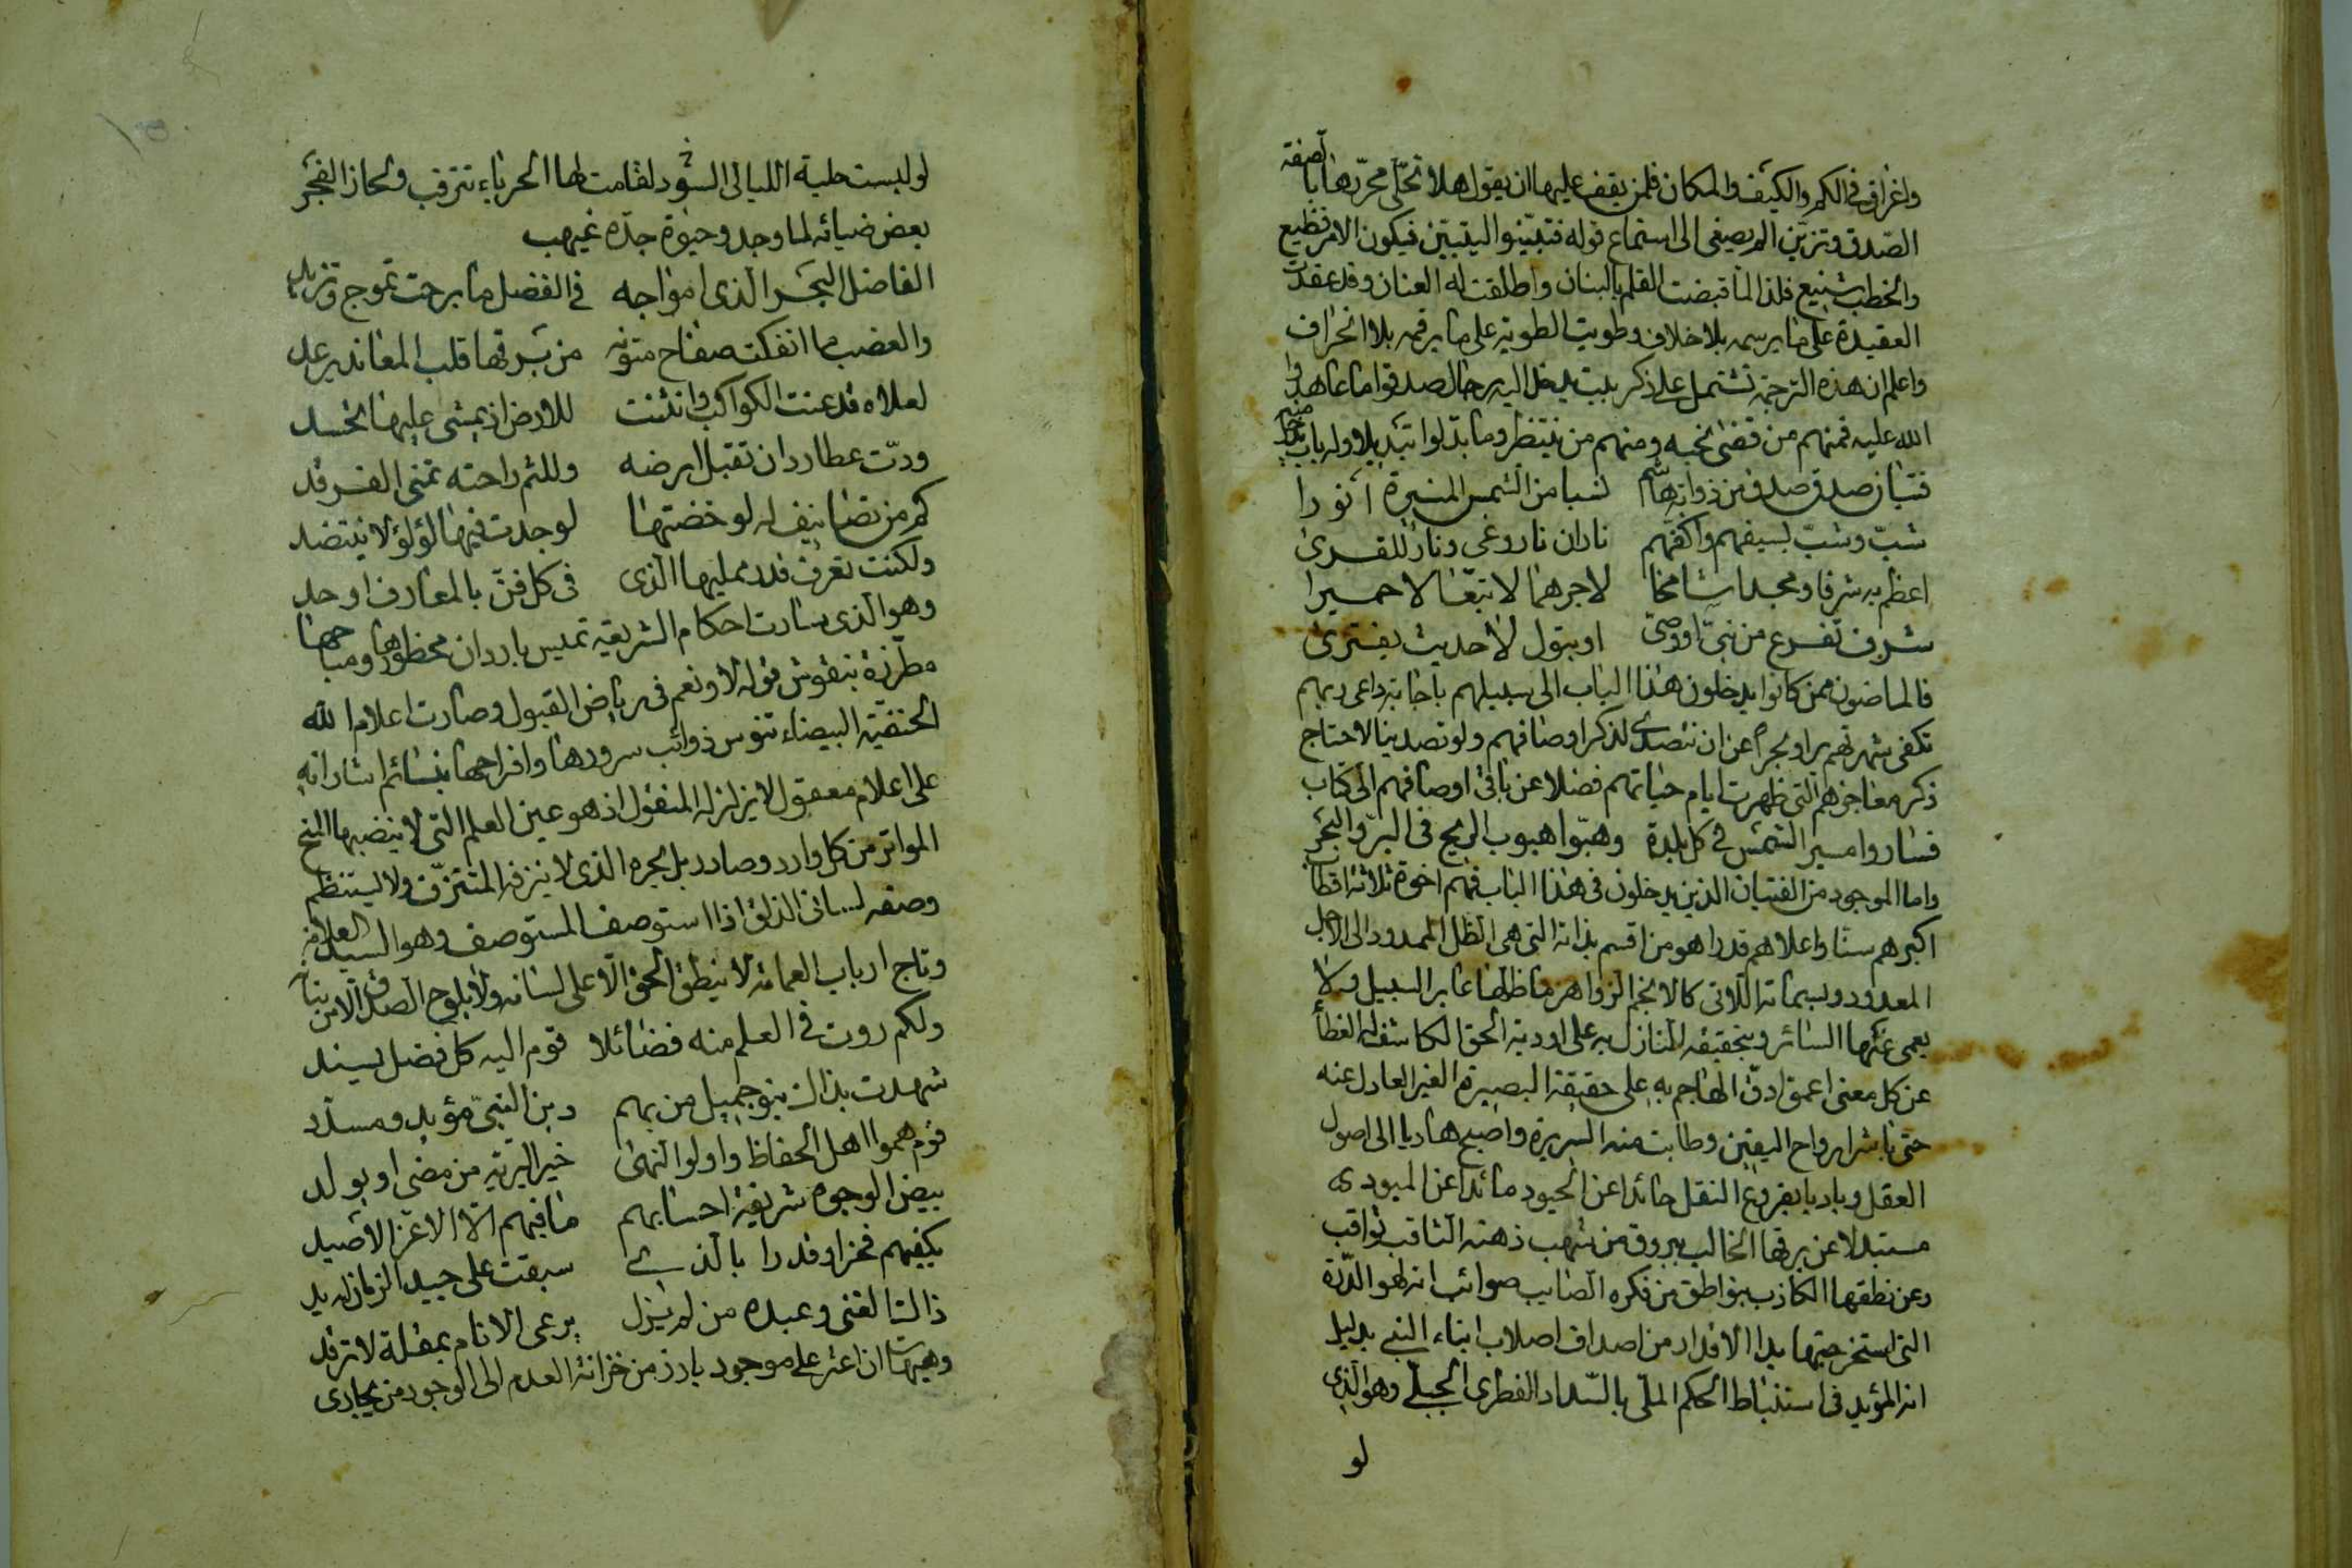 واغراق في الكم والكيف والمكان فلمن يقف عليها ان يقول هلا تحلّى محرّرها بآصفة
الصّدق وتزيّن الم يصغى الى استماع قوله فتبيّنوا اليتبيّن فيكون الامر فظيع
والخطب شنيع فلذا لما قبضت القلم بالبنان واطلقت له العنان وقد عقدت
العقيدة على ما يرسمه بلا خلاف وطويت الطوية على ما يرقمه بلا انحراف
واعلم ان هذه الترجمة تشتمل على ذكر بيت يدخل اليه رجال صدقوا ما عاهدوا
الله عليه فمنهم من قضى نحبه ومنهم من ينتظر وما بدّلوا تبديلا وله باب يدخل منه
فتيان صدق صدق من ذواتهم نسبا من الشمس المنيرة انورا
شبّ وشبّ بسيفهم واكفّهم ناران نار وغى ونار للقرى
اعظم به شرفا ومجدا شامخا لاجرهما لا تبّعا لا حميرا
شرف تفرع من نبيّ او وصيّ او بتول لا حديث يفترى
فالماضون ممن كانوا يدخلون هذا الباب الى سبيلهم باجابة داعى ربهم
تكفى شهرتهم برا وبحرا عن ان نتصدى لذكر اوصافهم ولو تصدينا لاحتاج
ذكر معاجزهم التى ظهرت ايام حياتهم فضلا عن باقى اوصافهم الى كتاب
فساروا مسير الشمس في كل بلدة وهبّوا هبوب الريح فى البرّ والبحر
واما الموجود من الفتيان الذين يدخلون فى هذا الباب فهم اخوة ثلاثة اقطاب
اكبرهم سنّا واعلاهم قدرا هو من اقسم بذاته التى هى الظل الممدود الى الاجل
المعدود وبسيماته اللاتى كالانجم الزواهر ما ظلّها عابر السبيل ولا
يعمى عنها السائر وبتحقيقه المنازل به على اودية الحق الكاشف له الغطأ
عن كل معنى اعمق ادقّ الهاجم به على حقيقة البصيرة الغير العادل عنه
حتى باشر ارواح اليقين وطابت منه السريرة واصبح هاديا الى اصول
العقل وباديا بفروع النقل حائدا عن الحيود مائدا عن الميودى
مستبدلا عن برقها الخالب ببروق من شهب ذهنه الثاقب ثواقب
وعن نطقها الكاذب بنواطق من فكره الصايب صوائب انه لهو الدّرة
التى استخرجتها يدا الاقدار من اصداف اصلاب ابناء النبي بدليل
انه المؤيد فى استنباط الحكم الملّى بالسّداد الفطرى الجبلّى وهو الذى
لو
لو لبست حلية الليالى السّود لقامت لها الحرباء تترقب ولحاز الفجر
بعض ضيائه لما وجد وحيوة جدّه غيهب
الفاضل البحر الذى امواجه في الفضل ما برحت تموج وتزبد
والعضب ما انفكت صفاح متونه من برقها قلب المعاند يرعد
لعلاه قد عنت الكواكب وانثنت للارض اذ يمشى عليها تحسد
ودّت عطارد ان تقبل ارضه وللثم راحته تمنى الفرقد
كم من تصانيف له لو خضتها لوجدت فيها لؤلؤ لا ينتضد
ولكنت تعرف قدر ممليها الذى فى كل فنّ بالمعارف اوحد
وهو الذى سارت احكام الشريعة تميس بابردان محظورها ومباحها
مطرّزة بنقوش قوله لا ونعم فى رياض القبول وصارت اعلام الملة
الحنفيّة البيضاء تنوس ذوائب سرورها وافراحها بنسائم اشاراته
على اعلام معقول لا يزلزله المنقول اذ هو عين العلم التى لا ينضبها المتح
المواتر من كل وارد وصادر بل بحره الذى لا ينزفه المتنزّف ولا يستنظم
وصفه لسانى الذلق اذا استوصف المستوصف وهو السيد العلامة
وتاج ارباب العمامة لا ينطق الحق الّا على لسانه ولا يلوح الصدق الّا من بنانه
ولكم روت في العلم منه فضائلا قوم اليه كل فضل يسند
شهدت بذاك بنو جميل من بهم دين النبيّ مؤيد ومسدّد
قوم هموا اهل الحفاظ واولوا النهى خير البريّة من مضى او يولد
بيض الوجوه شريفة احسابهم ما فيهم الّا الاعزّ الاصيد
يكفيهم فخرا وقدرا بالذى سبقت على جيد الزمان له يد
ذاك التا لغنى وعبده من لم يزل يرعى الانام بمقلة لا ترقد
وهيهات ان اعثر على موجود بارز من خزانة العدم الى الوجود من يجارى